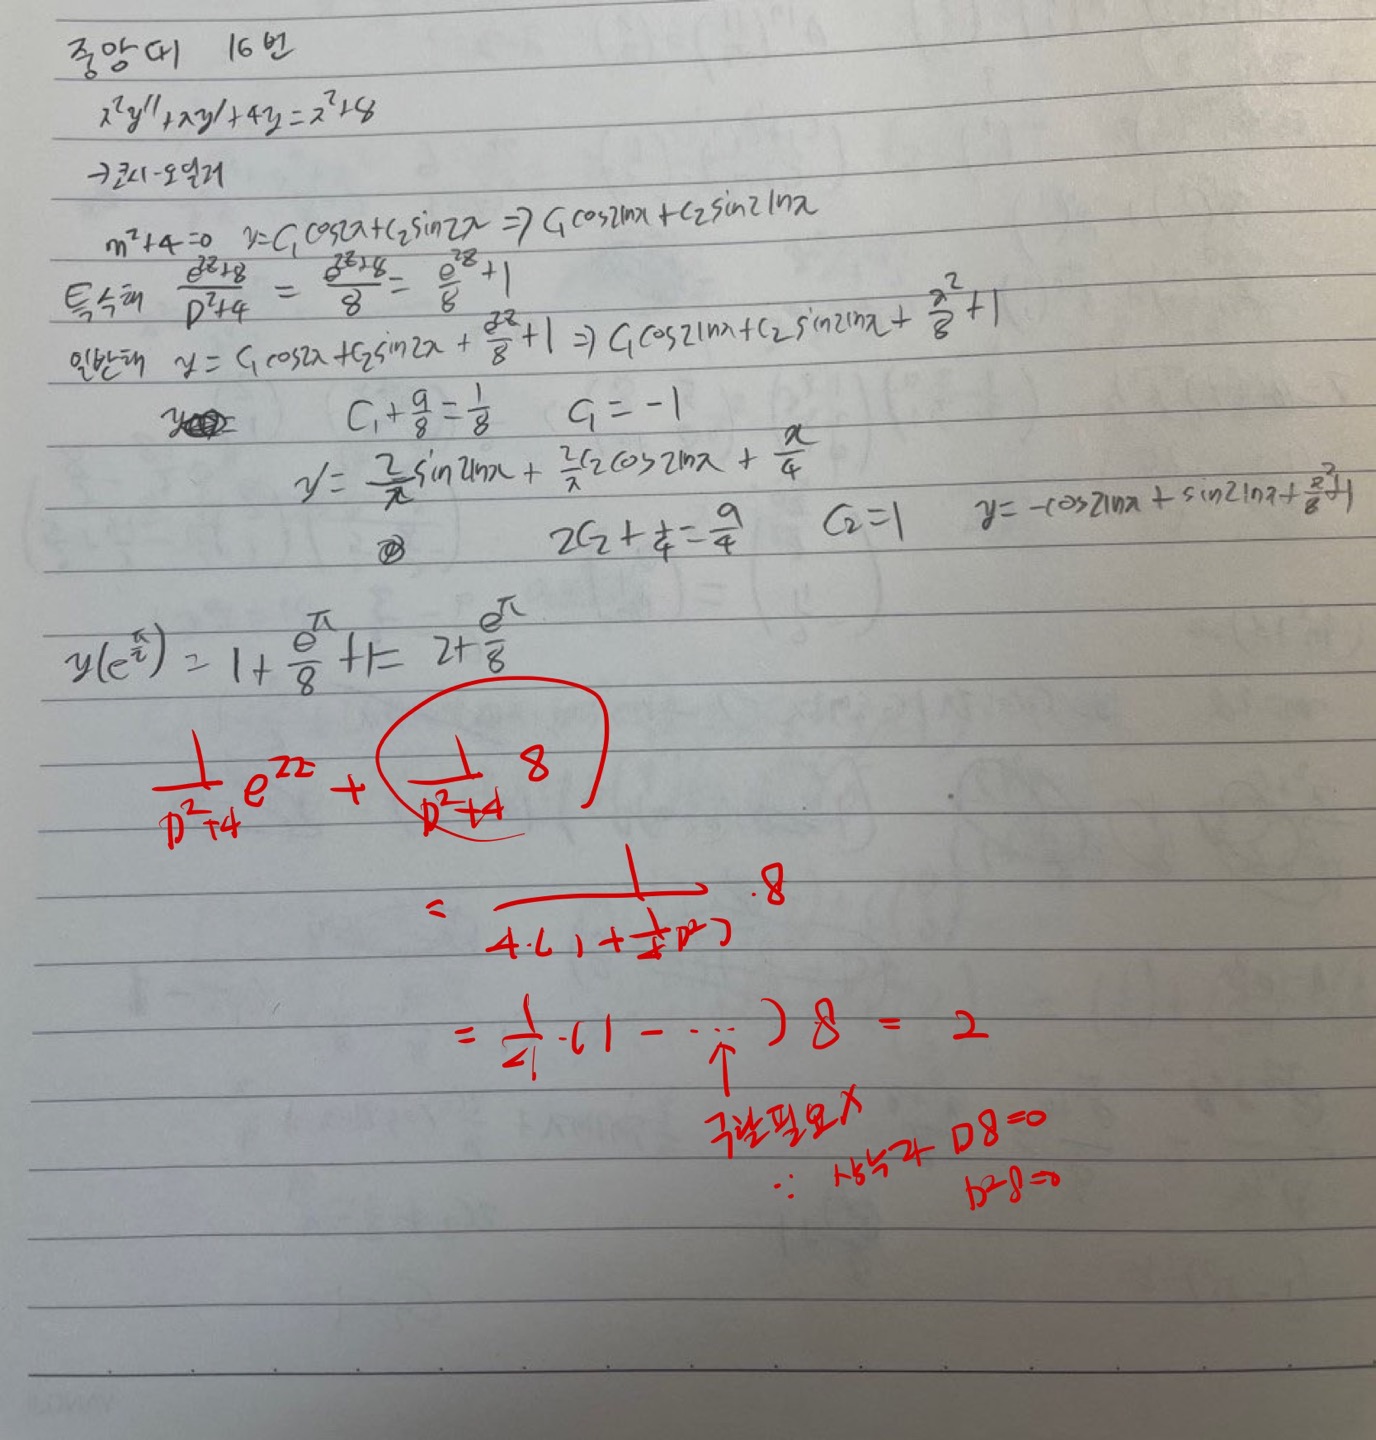 중앙대 16번
x²y″+xy′+4y=x²+8
→코시-오일러
m²+4=0 y=C₁cos2x+C₂sin2x ⇒ C₁cos2lnx+C₂sin2lnx
특수해 (e^{2z}+8)/(D²+4) = (e^{2z}+8)/8 = e^{2z}/8 +1
일반해 y = C₁cos2x+C₂sin2x + e^{2z}/8 +1 ⇒ C₁cos2lnx+C₂sin2lnx + x²/8 +1
C₁+9/8=1/8 C₁=-1
y′= 2/x sin2lnx + 2/x C₂cos2lnx + x/4
2C₂+1/4=9/4 C₂=1 y=-cos2lnx+sin2lnx+x²/8+1
y(e^{π/2}) = 1+e^π/8+1= 2+e^π/8
1/(D²+4) e^{2z} + 1/(D²+4) 8
= 1/(4·(1+1/4 D²)) ·8
= 1/4·(1-…) 8 = 2
구할필요X
∵ 상수라 D8=0
D²8=0